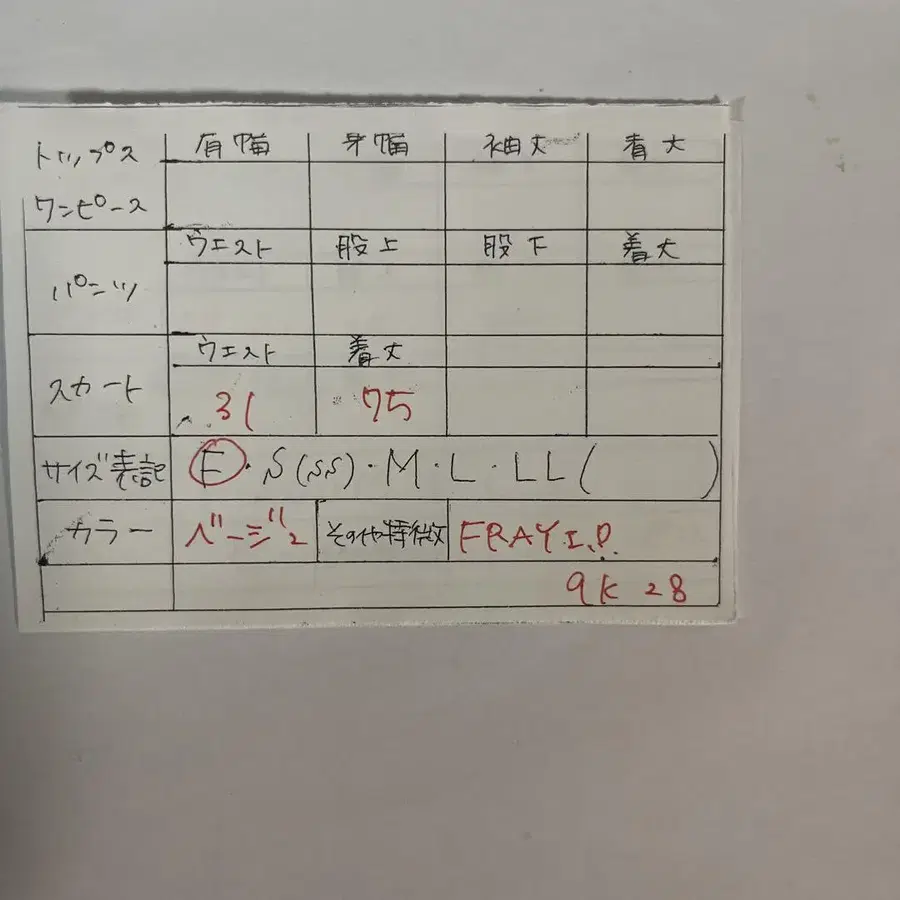 トップス 肩幅 身幅 袖丈 着丈
ワンピース
パンツ ウエスト 股上 股下 着丈
スカート ウエスト 着丈
31 75
サイズ表記 F・S(SS)・M・L・LL( )
カラー ベージュ その他特徴 FRAY I.D
9K 28